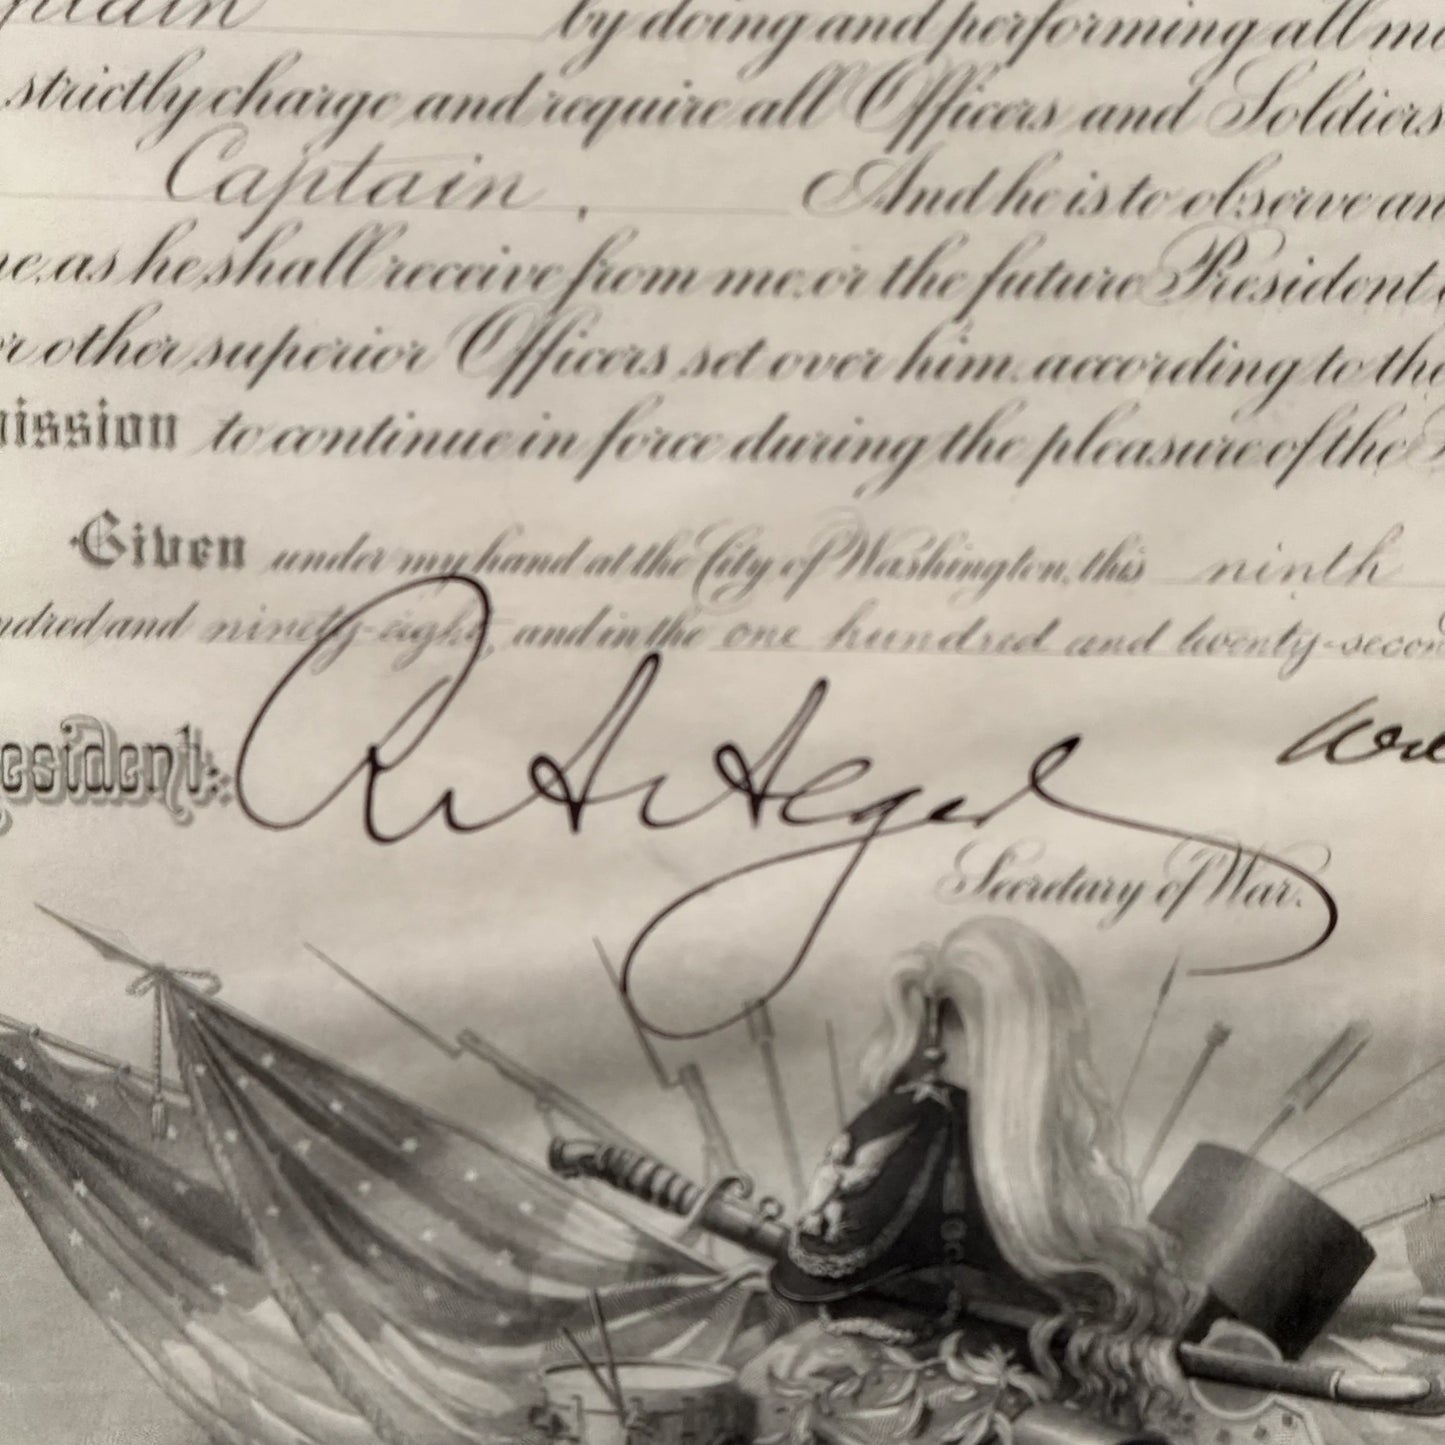 by doing and performing all
strictly charge and require all Officers and Soldiers
Captain, And he is to observe
as he shall receive from me, or the future President
other superior Officers set over him, according to the
to continue in force during the pleasure of the
Given under my hand at the City of Washington, this ninth
and ninety-eight, and in the one hundred and twenty-second
R A Alger
Secretary of War.